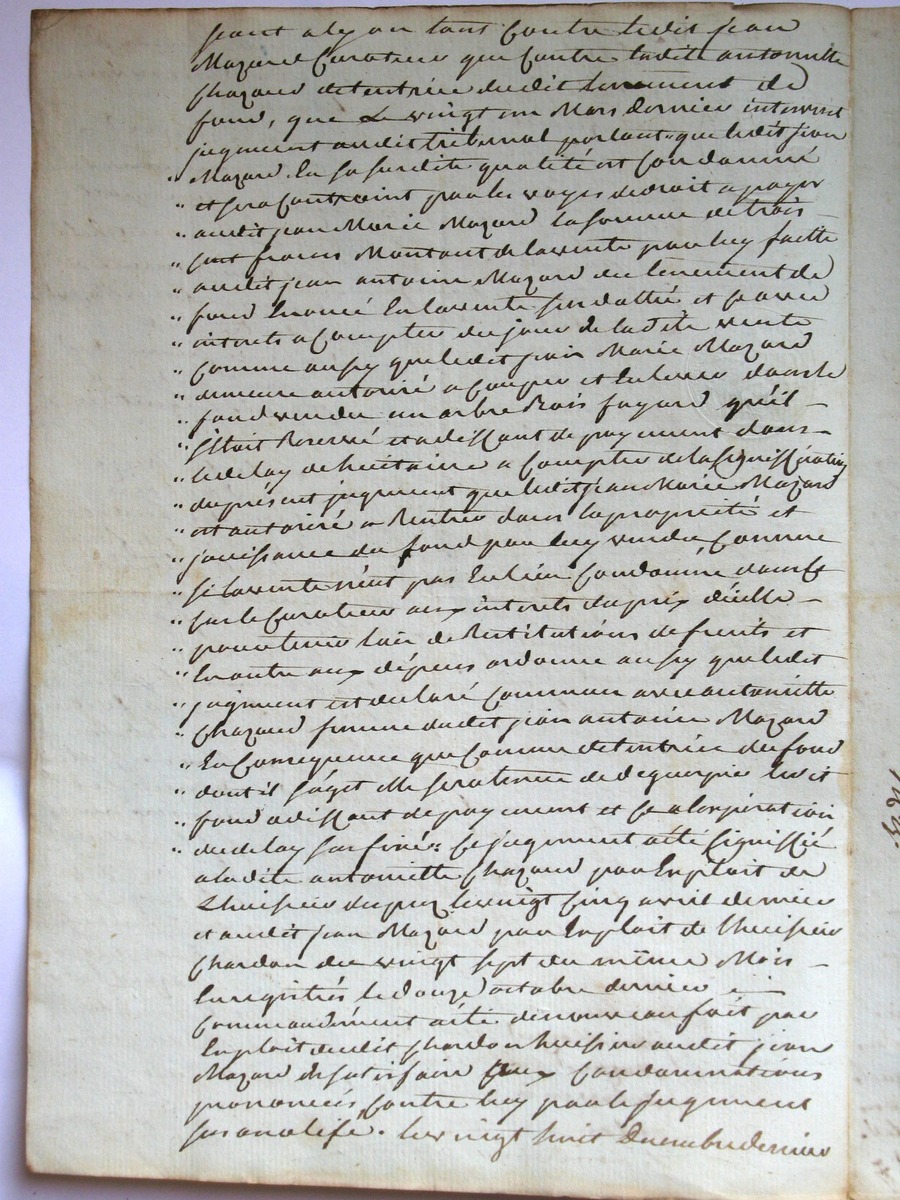 pont alyon tant Contre ledit jean
Mazard Curateur que Contre ladite antoinette
Chazaud detentrice dudit tenement de
fond, que Le vingt un Mars dernier intervint
jugement audit tribunal portant que ledit jean
" Mazard En sa susdite qualité est Condamné
" et sera Contraint par les voyes de droit a payer
" audit jean Marie Mazard la somme de trois
" cent francs Montant de la vente par luy faitte
" audit jean antoine Mazard du tenement de
" fond Enoncé En la vente susdattée et ce avec
" interets a Compter du jour de ladite vente
" Comme aussy que ledit jean Marie Mazard
" demeure autorisé a Couper et Enlever dans le
" fond vendu un arbre Bois fayard qu'il
" s'Etait Reservé et a deffaut de payement dans
" le delay de huitaine a Compter de la signiffication
" du présent jugement que ledit jean Marie Mazard
" est autorisé a Rentrer dans la propriété et
" jouissance du fond par luy vendu Comme
" si la vente n'eut pas Eu lieu Condamne dans ce
" cas le Curateur aux interets du prix d'icelle
" pour tenir lieu de Restitutions de fruits et
" En outre aux dépens ordonne aussy que ledit
" jugement est declaré Commun avec antoinette
" Chazaud femme dudit jean antoine Mazard
" En Consequence que Comme detentrice du fond
" dont il s'agit elle sera tenue de deguerpir ledit
" fond a deffaut de payement et ce a l'expiration
" du delay sus fixé: Ce jugement a été signiffié
a ladite antoinette Chazaud par Exploit de
L'huissier dupuy le vingt Cinq avril dernier
et audit jean Mazard par Exploit de l'huissier
Chardon du vingt sept du même Mois
Enregistrés le douze octobre dernier
Commandement a été de nouveau fait par
Exploit dudit Chardon huissier audit jean
Mazard de satisfaire aux Condamnations
prononcés Contre luy par le jugement
sus analisé. le vingt huit Decembre dernier